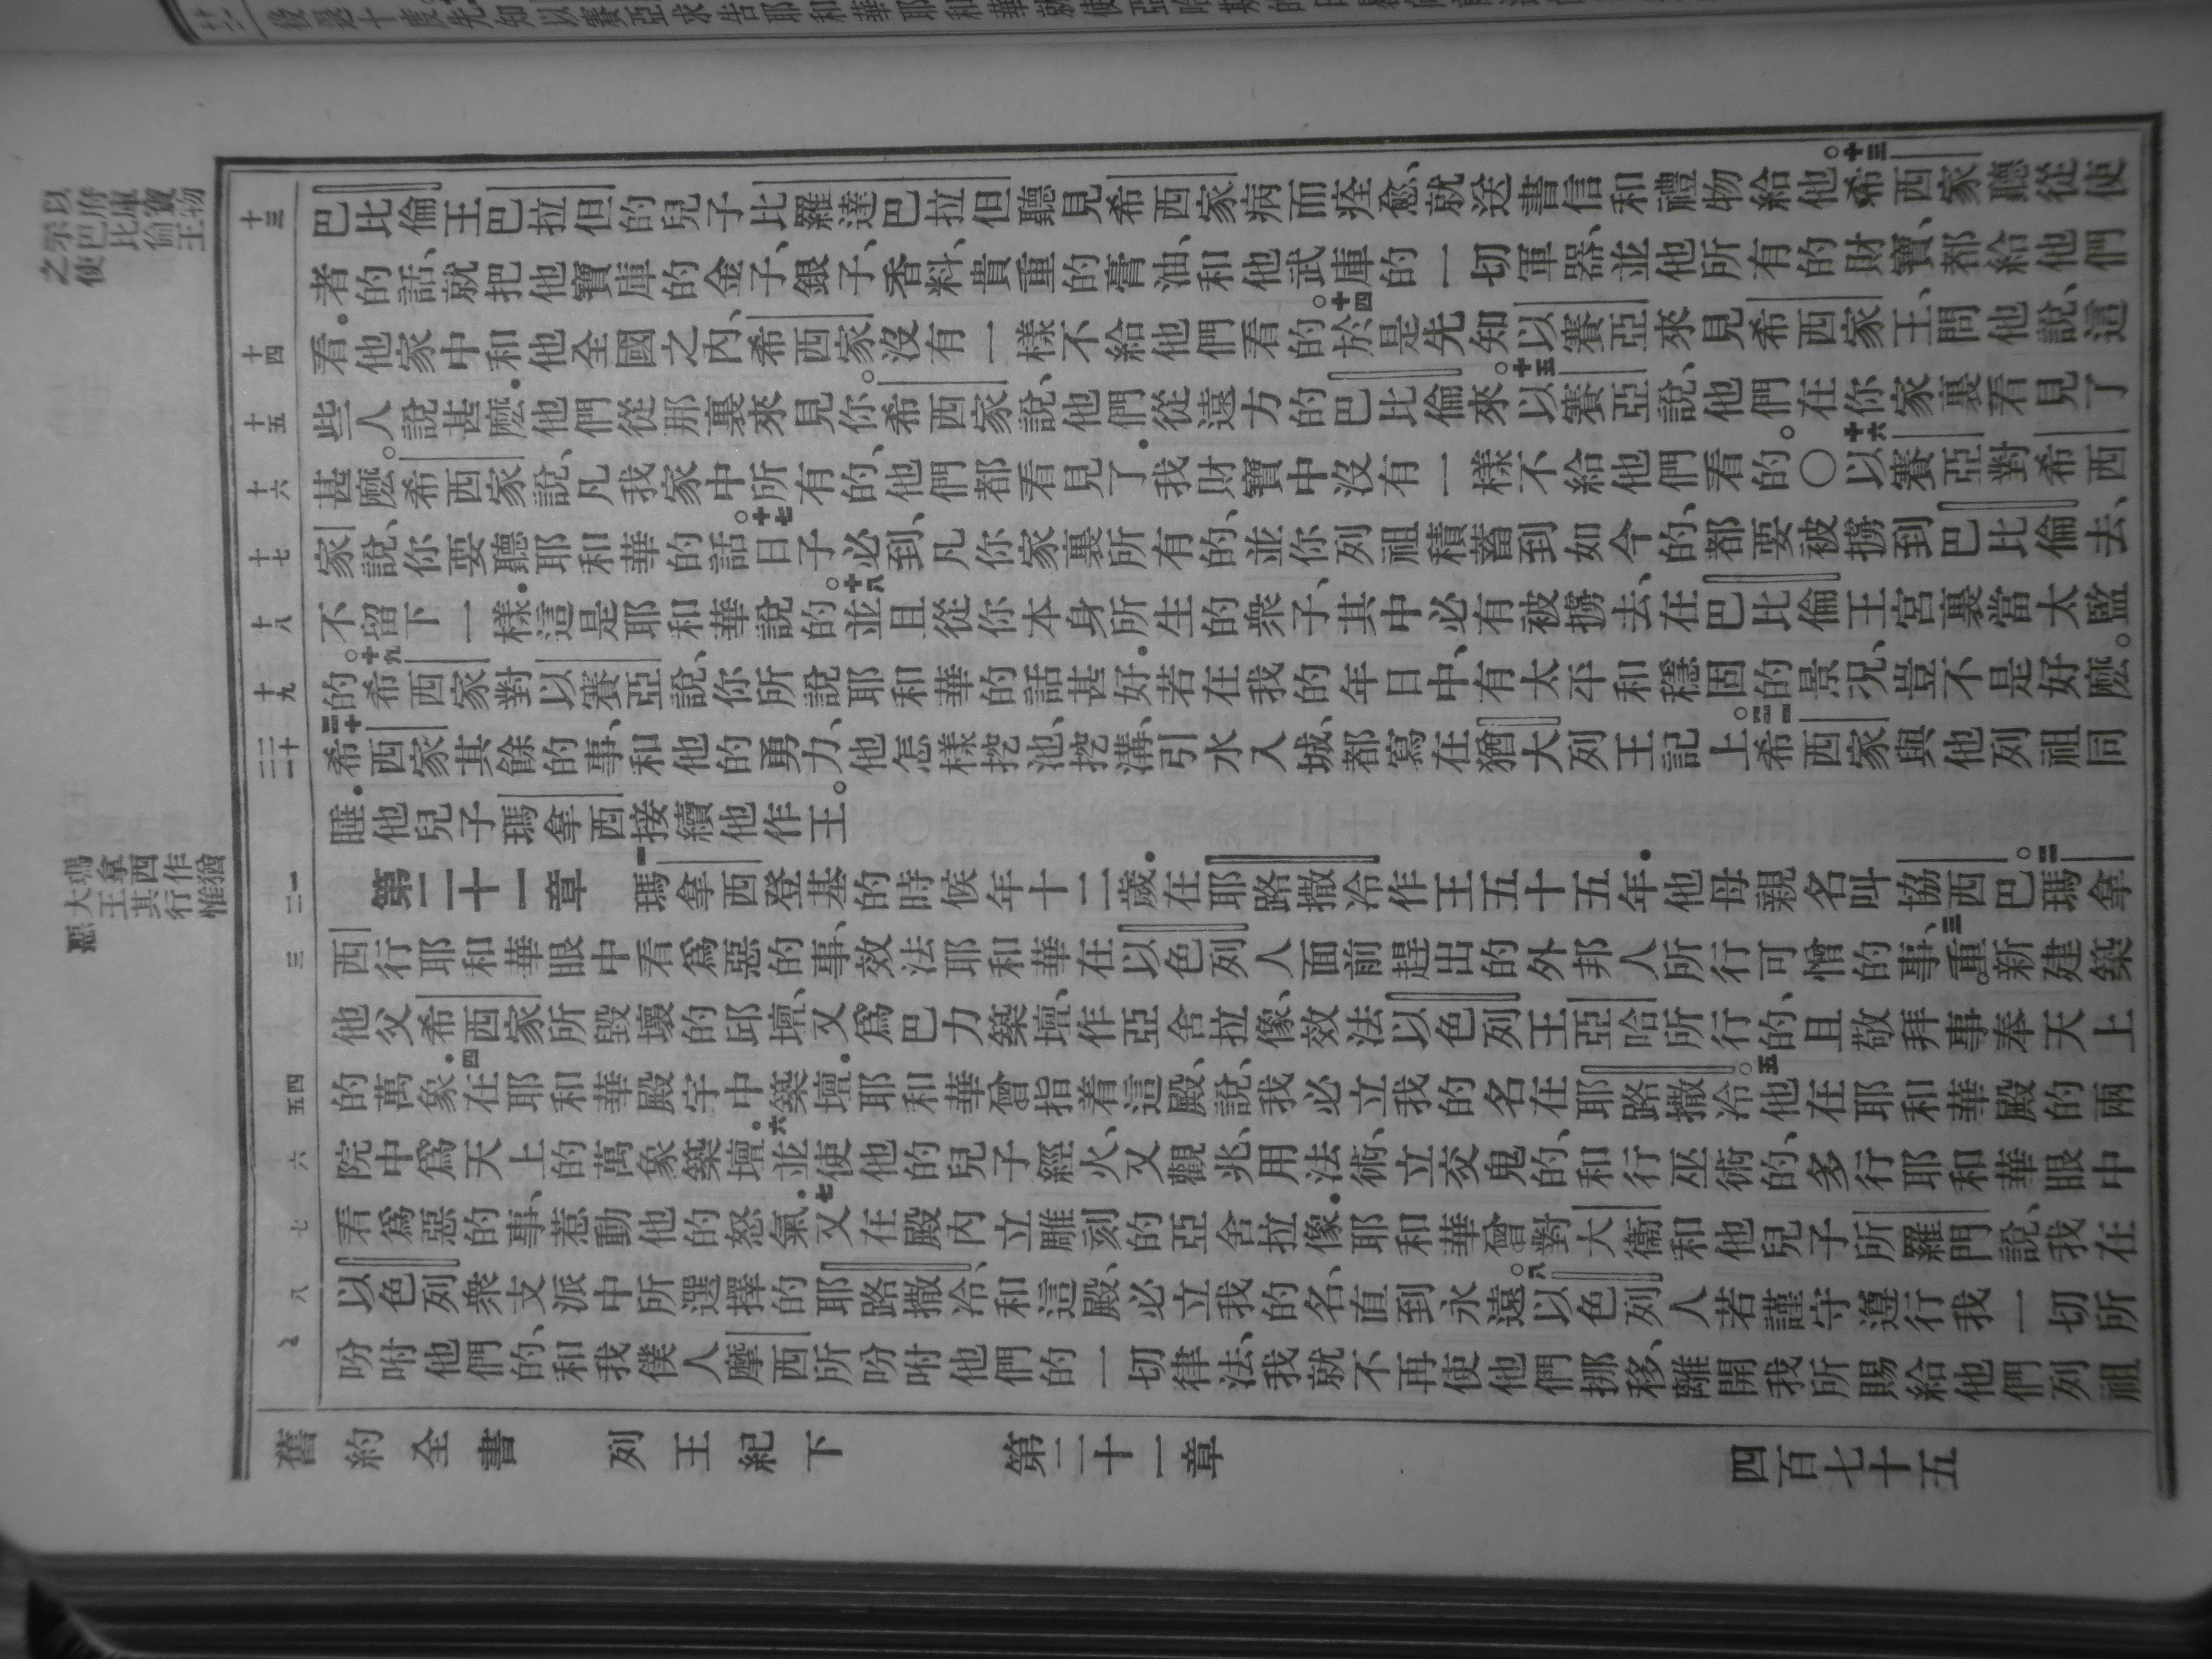 以府庫寶物
示巴比倫王
之使
十三
巴比倫王巴拉但的兒子比羅達巴拉但聽見希西家病而痊愈、就送書信和禮物給他。十三希西家聽從使
者的話、就把他寶庫的金子、銀子、香料、貴重的膏油、和他武庫的一切軍器、並他所有的財寶、都給他們
十四
看．他家中和他全國之內、希西家沒有一樣不給他們看的。十四於是先知以賽亞來見希西家王、問他說、這
十五
些人說甚麽．他們從那裏來見你。希西家說、他們從遠方的巴比倫來。十五以賽亞說、他們在你家裏看見了
十六
甚麽。希西家說、凡我家中所有的、他們都看見了．我財寶中沒有一樣不給他們看的。〇十六以賽亞對希西
十七
家說、你要聽耶和華的話。十七日子必到、凡你家裏所有的、並你列祖積蓄到如今的、都要被擄到巴比倫去、
十八
不留下一樣．這是耶和華說的。十八並且從你本身所生的衆子、其中必有被擄去、在巴比倫王宮裏當太監
十九
的。十九希西家對以賽亞說、你所說耶和華的話甚好．若在我的年日中、有太平和穩固的景況、豈不是好麽。
二十
二一
二十希西家其餘的事、和他的勇力、他怎樣挖池、挖溝、引水入城、都寫在猶大列王記上。二一希西家與他列祖同
睡．他兒子瑪拿西接續他作王。
瑪拿西作猶
大王其行惟
惡
一
二
第二十一章 一瑪拿西登基的時候年十二歲．在耶路撒冷作王五十五年．他母親名叫協西巴。二瑪拿
三
西行耶和華眼中看爲惡的事、效法耶和華在以色列人面前趕出的外邦人所行可憎的事、三重新建築
他父希西家所毀壞的邱壇、又爲巴力築壇、作亞舍拉像、效法以色列王亞哈所行的、且敬拜事奉天上
四
五
的萬象．四在耶和華殿宇中築壇．耶和華曾指着這殿、說、我必立我的名在耶路撒冷。五他在耶和華殿的兩
六
院中爲天上的萬象築壇．六並使他的兒子經火、又觀兆、用法術、立交鬼的、和行巫術的、多行耶和華眼中
七
看爲惡的事、惹動他的怒氣．七又在殿內立雕刻的亞舍拉像．耶和華曾對大衞和他兒子所羅門說、我在
八
以色列衆支派中所選擇的耶路撒冷、和這殿、必立我的名、直到永遠。八以色列人若謹守遵行我一切所
吩咐他們的、和我僕人摩西所吩咐他們的一切律法、我就不再使他們挪移、離開我所賜給他們列祖
舊約全書 列王紀下 第二十一章 四百七十五